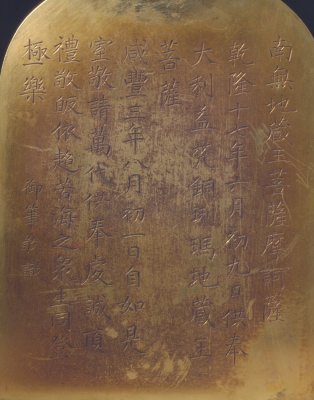 南無地藏王菩薩摩訶薩
乾隆十七年月初九日供奉
大利益銅琍瑪地藏王
菩薩
咸豐三年八月初一日自如是
室敬請萬代供奉虔誠頂
禮敬皈依超苦海之眾生同登
極樂
御筆敬識